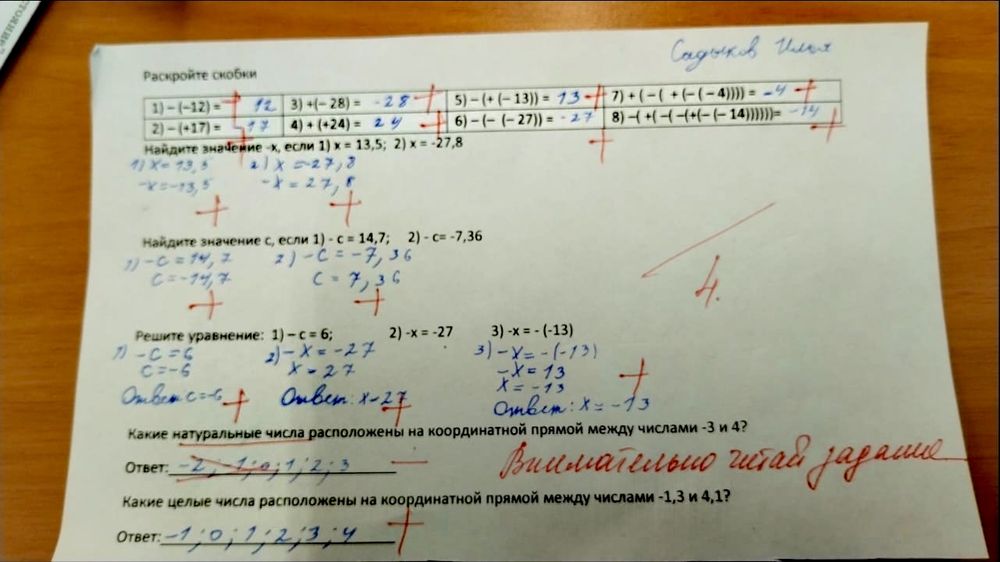 стояние"
Садыков Илья
Раскройте скобки
1) – (–12) = 12 3) +(– 28) = -28 5) – (+ (– 13)) = 13 7) + ( – ( + (– ( – 4)))) = -4
2) – (+17) = -17 4) + (+24) = 24 6) – (– (– 27)) = -27 8) –( +( –( –(+(– (– 14))))))= -14
Найдите значение -x, если 1) x = 13,5; 2) x = -27,8
1) x = 13,5 2) x = -27,8
-x = -13,5 -x = 27,8
Найдите значение с, если 1) - с = 14,7; 2) - с= -7,36
1) -c = 14,7 2) -c = -7,36
c = -14,7 c = 7,36
4.
Решите уравнение: 1) – с = 6; 2) -x = -27 3) -x = - (-13)
1) -c = 6 2) -x = -27 3) -x = -(-13)
c = -6 x = 27 -x = 13
x = -13
Ответ c = -6 Ответ: x = 27 Ответ: x = -13
Какие натуральные числа расположены на координатной прямой между числами -3 и 4?
Ответ: -2, -1; 0; 1; 2; 3
Внимательно читай задание
Какие целые числа расположены на координатной прямой между числами -1,3 и 4,1?
Ответ: -1; 0; 1; 2; 3; 4